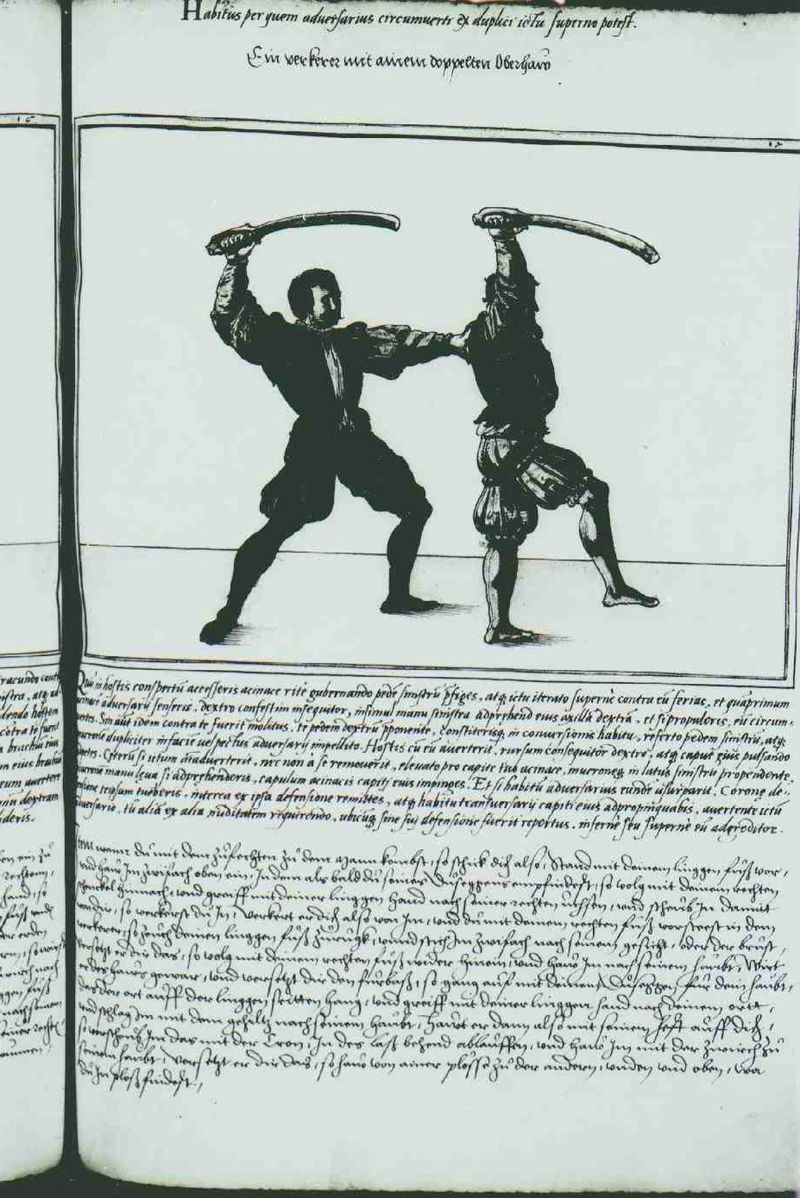 Habitus per quem adversarius circumverti ex duplici ictu superno potest.
Ein verkerer mit ainem doppelten Oberhaw
16
17
Qui in hostis conspectū accesseris acinace rite gubernando pedē sinistrū p̄figes, atq; ictu iterato superne contra eū ferias, et quāprimum
adversarij senseris, dextro confestim insequitor, insimul manu sinistra adprehend eius axillā dextrā, et si propuleris, eū circum-
Sin aūt idem contra te fuerit molitus, te pedem dextrū pponente, constiterisq; in conversionis habitu, referto pedem sinistrū, atq;
dupliciter in faciē vel pectus adversarij impellito. Hostis cū eū averterit, rursum consequitor dextro, atq; caput eius pulsando
Ceterū si ictum aīadverterit, nec non a se removerit, elevato pro capite tuo acinace, mucroneq; in latus sinistrū propendente,
manu leva si adprehenderis, capulum acinacis capiti eius impinges. Et si habitu adversarius eundē usurparit, Coronę de-
tueberis, interea ex ipsa defensione remittes, atq; habitu transversarij capiti eius adpropinquabis, avertente ictū
adversario, tu aliā ex alia nuditatem requirendo, ubicūq; sine sui defensione fuerit repertus, infernè seu supernè eū adgreditor.
Item wann du mit dem zůfechten zů dem Mann kombst, so schick dich also, Stand mit deinem linggen fůß vor,
vnd haw Im zwifach oben ein, Indem als bald du seines Dusseggens empfindest, so volg mit deinem rechten
schenckel hinnach, vnd greiff mit deiner linggen hand nach seiner rechten Uchsen, vnd scheub In damit
von dir, so verkerst du In, Verkert er dich also von Im, vnd du mit deinem rechten fůß vorsteest in dem
verkerer, so zeuch deinen linggen fůß zurugk, vnnd stich Im zwifach nach seinem gesicht, oder der brust,
versetzt er dir das, so volg mit deinem rechten fůß wider hinein, vnd haw Im nach seinem haubt, Wirt
er des haws gewar, vnd versetzt dir den fürbaß, so gang auf mit deinem Dusseggen für dein haubt,
das der ort auff der linggen seitten hang, vnd greiff mit deiner linggen hand nach deinem ort,
vnd schlag Im mit dem gehiltz nach seinem haubt, Hawt er dann also mit seinem heft auff dich,
so versetz Im das mit der Cron, In des laß behend ablauffen, vnd haw Im mit der zwirch zů
seinem haubt, versetzt er dir das, so haw von ainer plösse zů der andern, vnden vnd oben, wa
du In ploß findest,